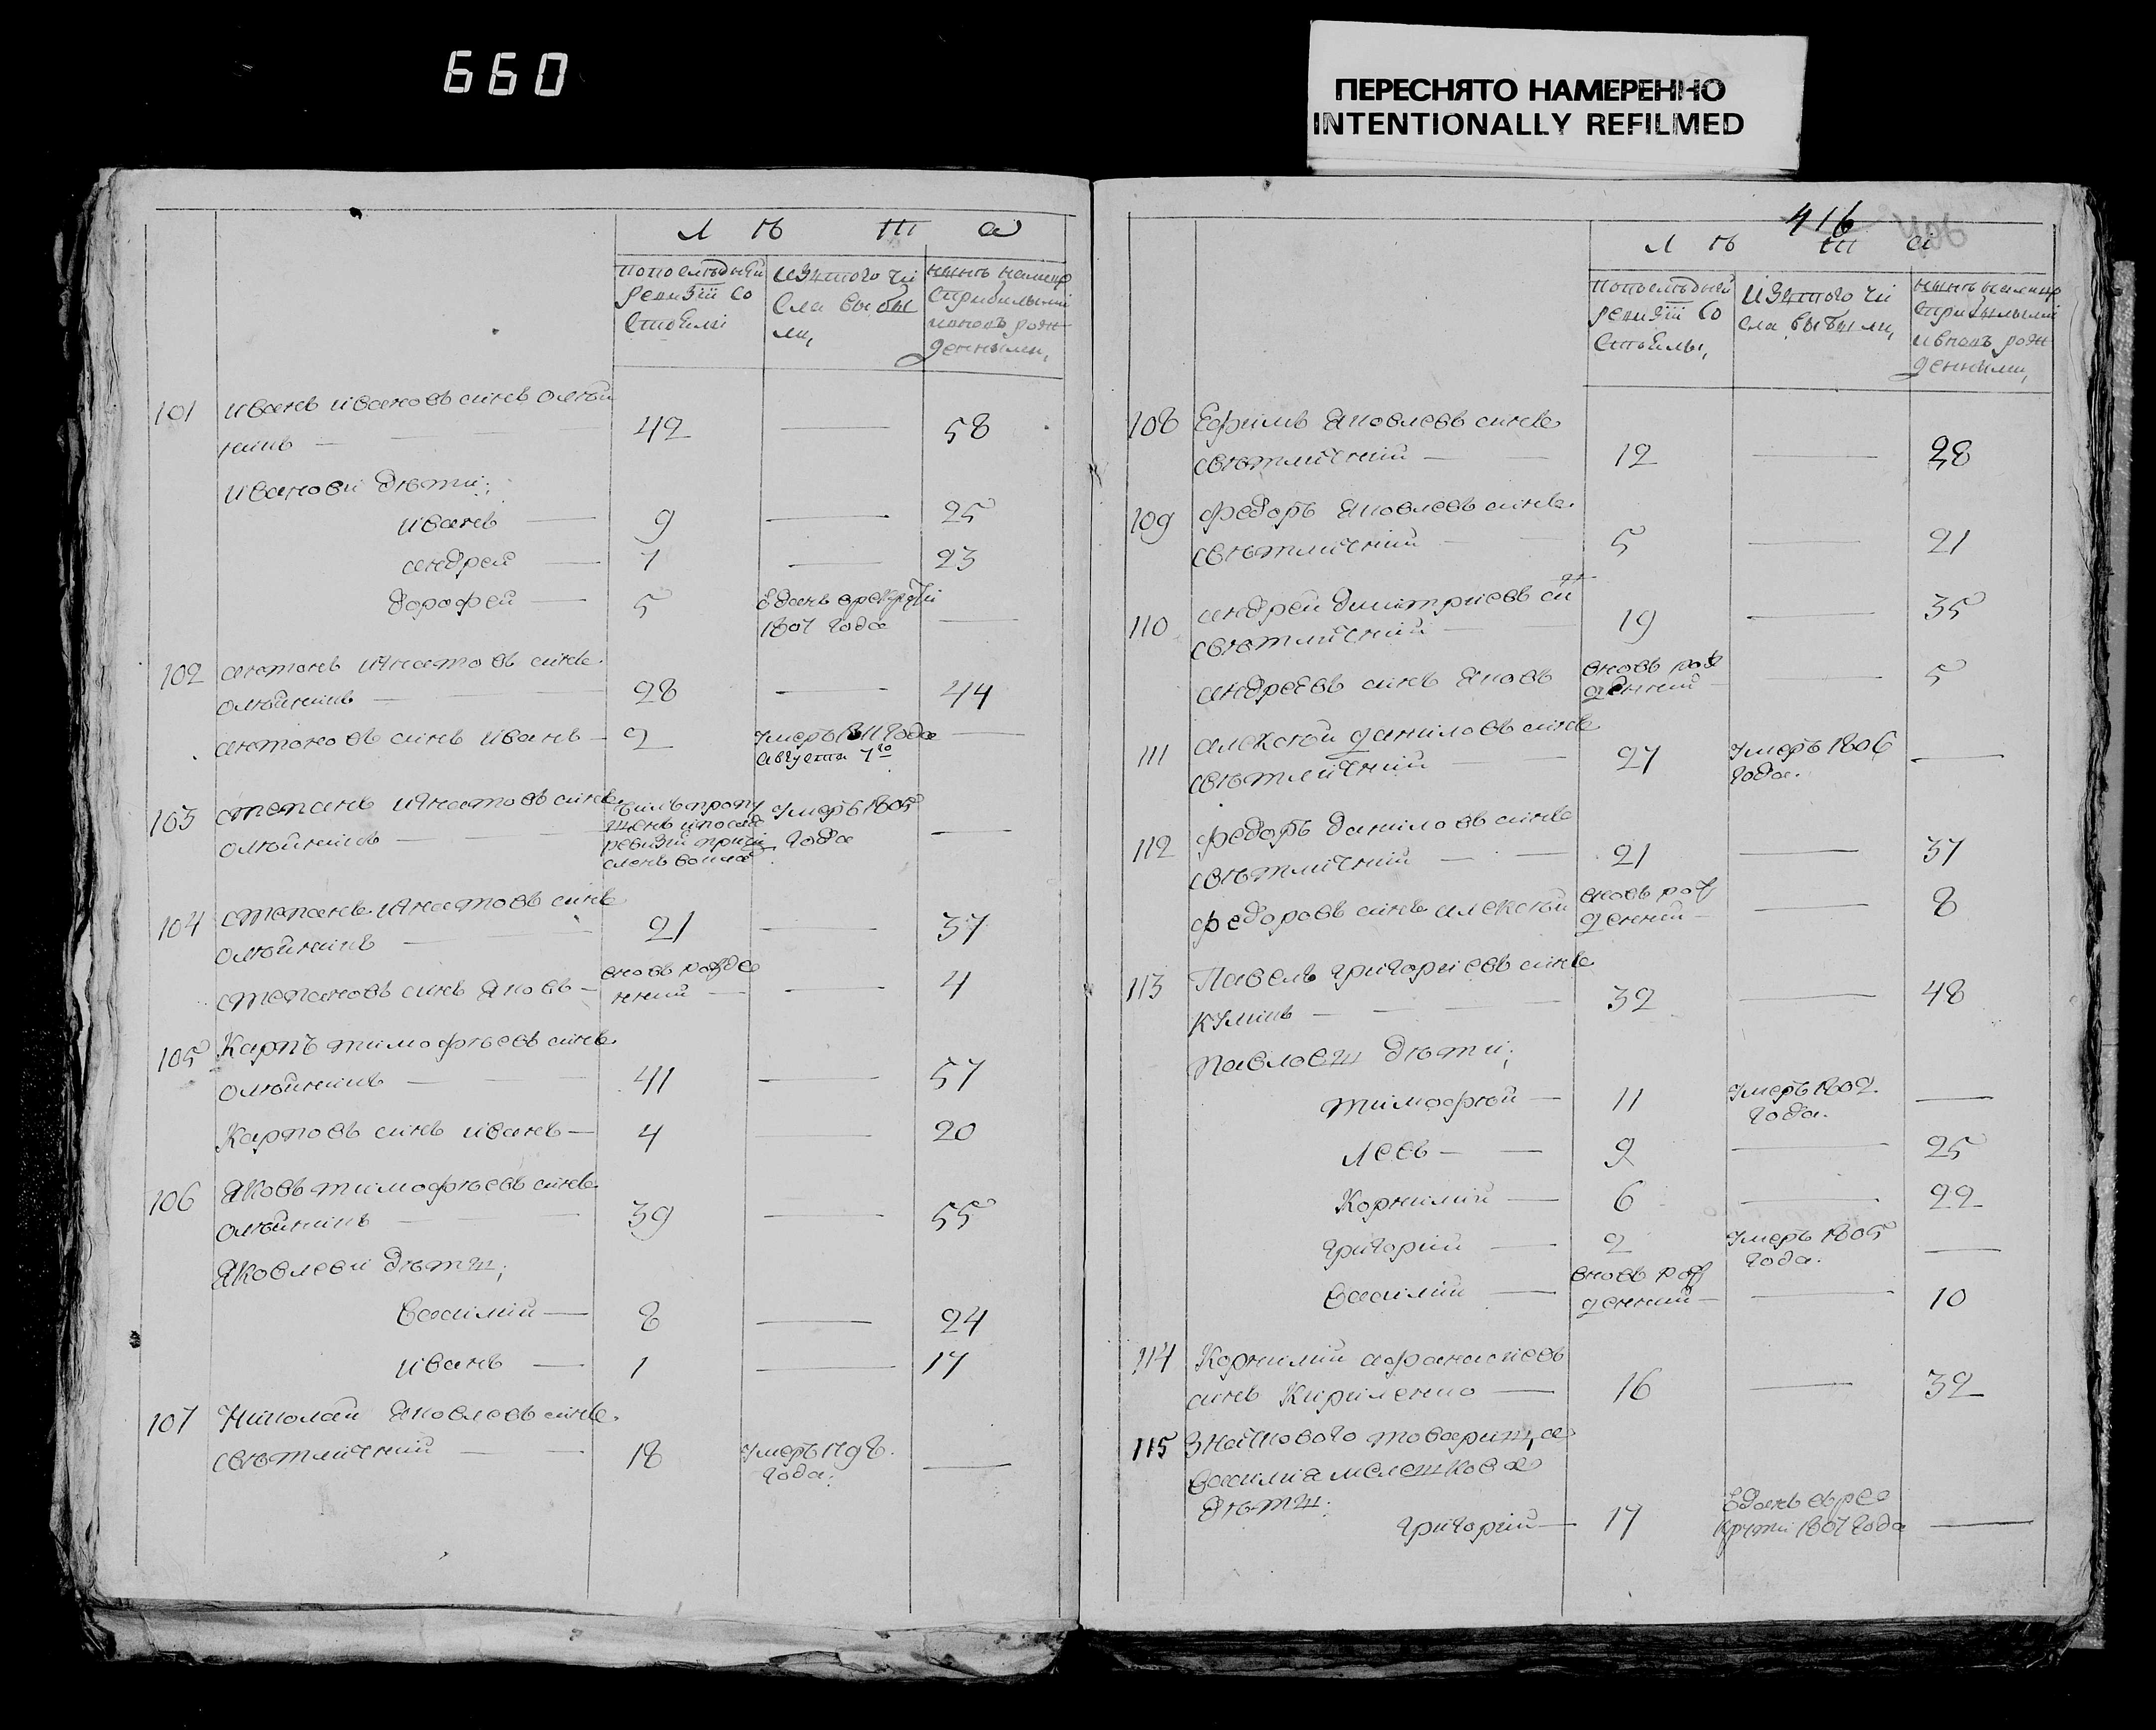 660
ПЕРЕСНЯТО НАМЕРЕННО
INTENTIONALLY REFILMED
Л Ѣ Т А
попослѣдней
ревизїи со
стоѣли
изътого чи
сла выбы
ли,
нынѣ налицо
сприбылыми
ивновь рож
денными,
101 иванъ ивановъ синъ олѣй
никъ — 42 — 58
иванови дѣти;
иванъ — 9 — 25
андрей — 7 — 23
дорофей — 5 зданъ врекруты
1807 года —
102 антонъ игнатовъ синъ
олѣйникъ — 28 — 44
антоновъ синъ иванъ — 2 умеръ 1811 года
августа 7го —
103 степанъ игнатовъ синъ
олѣйникъ — умеръ 1805
года —
104 степанъ игнатовъ синъ
олѣйникъ — 21 — 37
степановъ синъ яковъ — вновь рожде
нний — — 4
105 Карпъ тимофѣевъ синъ
олѣйникъ — 41 — 57
Карповъ синъ иванъ — 4 — 20
106 яковъ тимофѣевъ синъ
олѣйникъ — 39 — 55
яковлеви дѣти;
василий — 8 — 24
иванъ — 1 — 17
107 Николай яковлевъ синъ
свѣтличний — 18 умеръ 1798
года. —
416 406
Л Ѣ Т А
попослѣдней
ревизїи со
стоѣлы,
изътого чи
сла выбыли,
нынѣ налицо
сприбылыми
ивновь рож
денними,
108 Ефимъ яковлевъ синъ
свѣтличний — 12 — 28
109 федоръ яковлевъ синъ
свѣтличний — 5 — 21
110 андрей дмитриевъ синъ
свѣтличний — 19 — 35
андреевъ синъ яковъ вновь рож
денний — 5
111 алексѣй даниловъ синъ
свѣтличний — 27 умеръ 1806
года. —
112 федоръ даниловъ синъ
свѣтличний — 21 — 37
федоровъ синъ алексѣй вновь рож
денний — — 8
113 Павелъ григориевъ синъ
кУлинъ — 32 — 48
павлови дѣти;
тимофѣй — 11 умеръ 1802
года. —
Левъ — 9 — 25
Корнилий — 6 — 22
григорий — 2 умеръ 1805
года. —
василий — вновь рож
денний — — 10
114 Корнилий афанасиевъ
синъ Кириленко — 16 — 32
115 Значкового товарища
василия мелешкова
дѣти:
григорий — 17 зданъ врек
руты 1807 года —